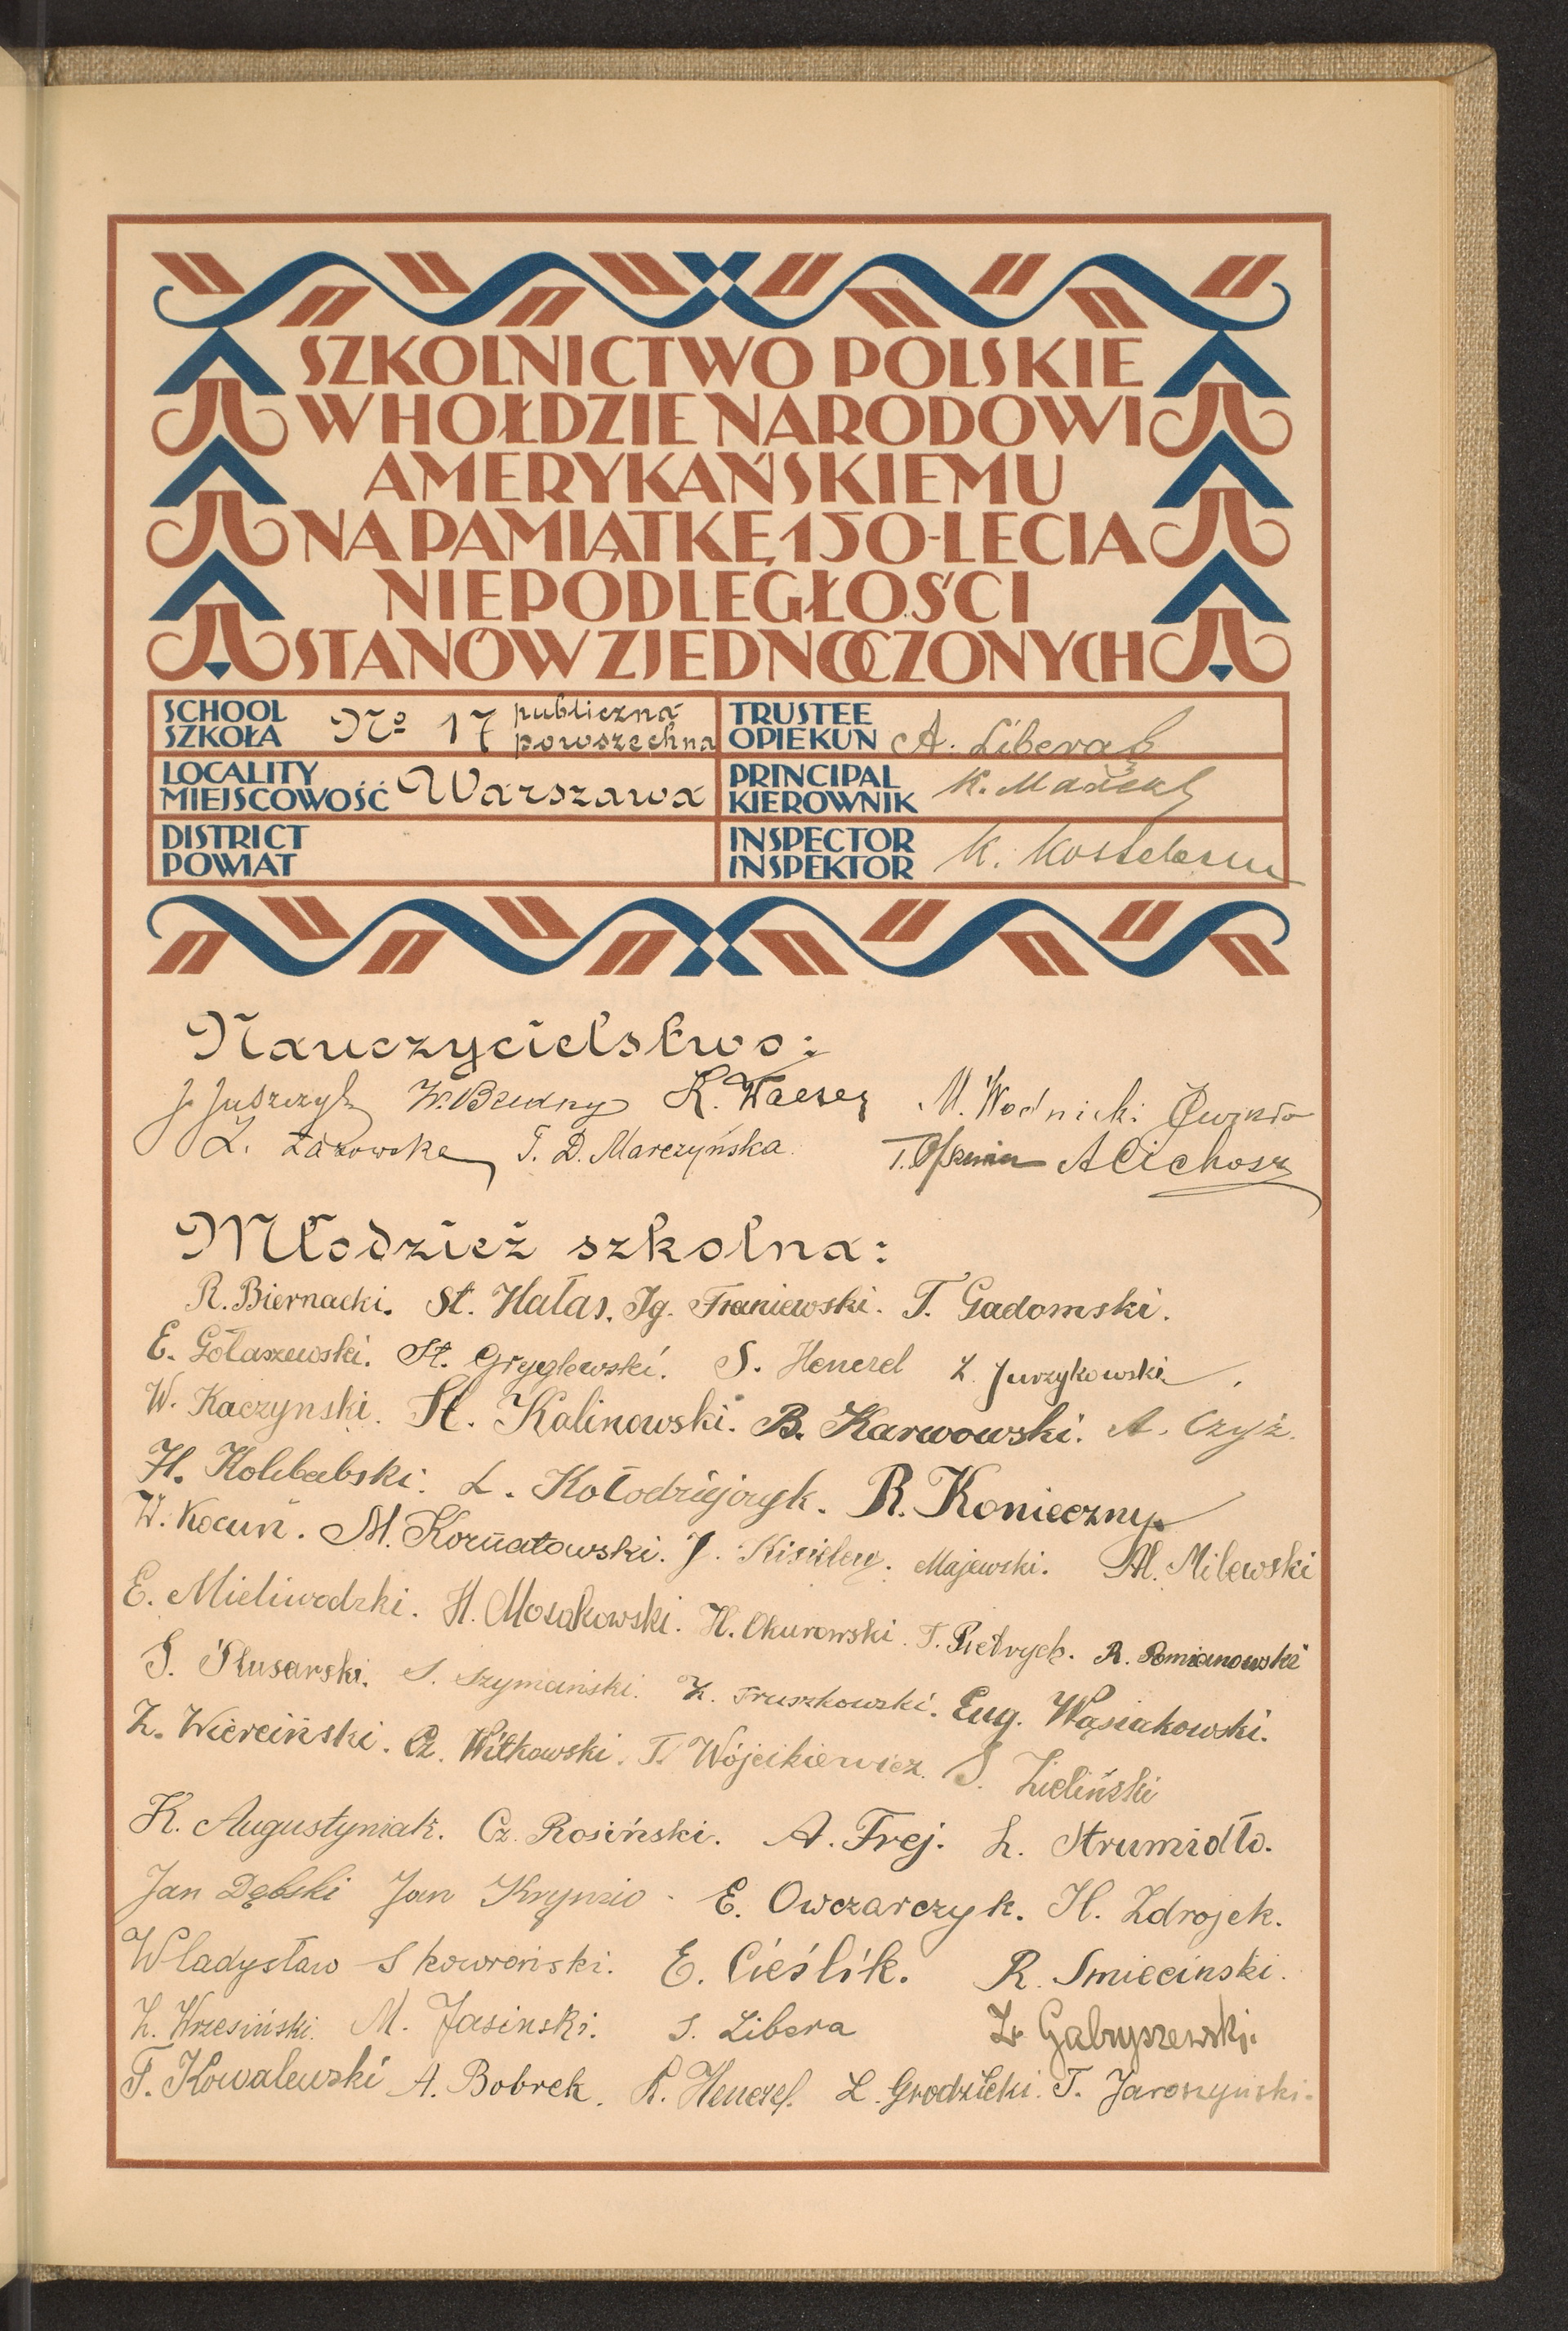 SZKOLNICTWO POLSKIE
W HOŁDZIE NARODOWI
AMERYKAŃSKIEMU
NA PAMIĄTKĘ 150-LECIA
NIEPODLEGŁOŚCI
STANÓW ZJEDNOCZONYCH
SCHOOL
SZKOŁA № 17 publiczna powszechna
TRUSTEE
OPIEKUN A. Libera
LOCALITY
MIEJSCOWOŚĆ Warszawa
PRINCIPAL
KIEROWNIK K.
DISTRICT
POWIAT
INSPECTOR
INSPEKTOR K.
Nauczycielstwo:
J. Juszczyk W. Budny K. M. Wodnicki
Z. Łazowska T. D. Marczyńska. T. A Cichosz
Młodzież szkolna:
R. Biernacki. St. Hałas. Ig. Franiewski. T. Gadomski.
E. Gołaszewski. St. Gryglewski. S. Henczel Z. Jurzykowski.
W. Kaczynski. St. Kalinowski. B. Karwowski. A. Czyż.
H. Kołbabski. L. Kołodziejczyk. R. Konieczny.
W. Kocuń. M. Kornatowski. J. Kisielew. Majewski. M. Milewski
E. Mieliwodzki. H. Mosakowski. H. Okurowski. T. Pietrych. R. Pomianowski
S. Ślusarski. S. Szymański. K. Truszkowski. Eug. Wąsiakowski.
Z. Wierciński. Cz. Witkowski. T. Wójcikiewicz. S. Zieliński
K. Augustyniak. Cz. Rosiński. A. Frej. L. Strumidło.
Jan Dębski Jan E. Owczarczyk. H. Zdrojek.
Władysław Skowroński. E. Cieślik. R. Smieciński.
Z. Wrzesiński. M. Jasinski. S. Libera Z. Gabryszewski.
F. Kowalewski A. Bobrek. R. Henczel. L. Grodzicki. T. Jaroszyński.